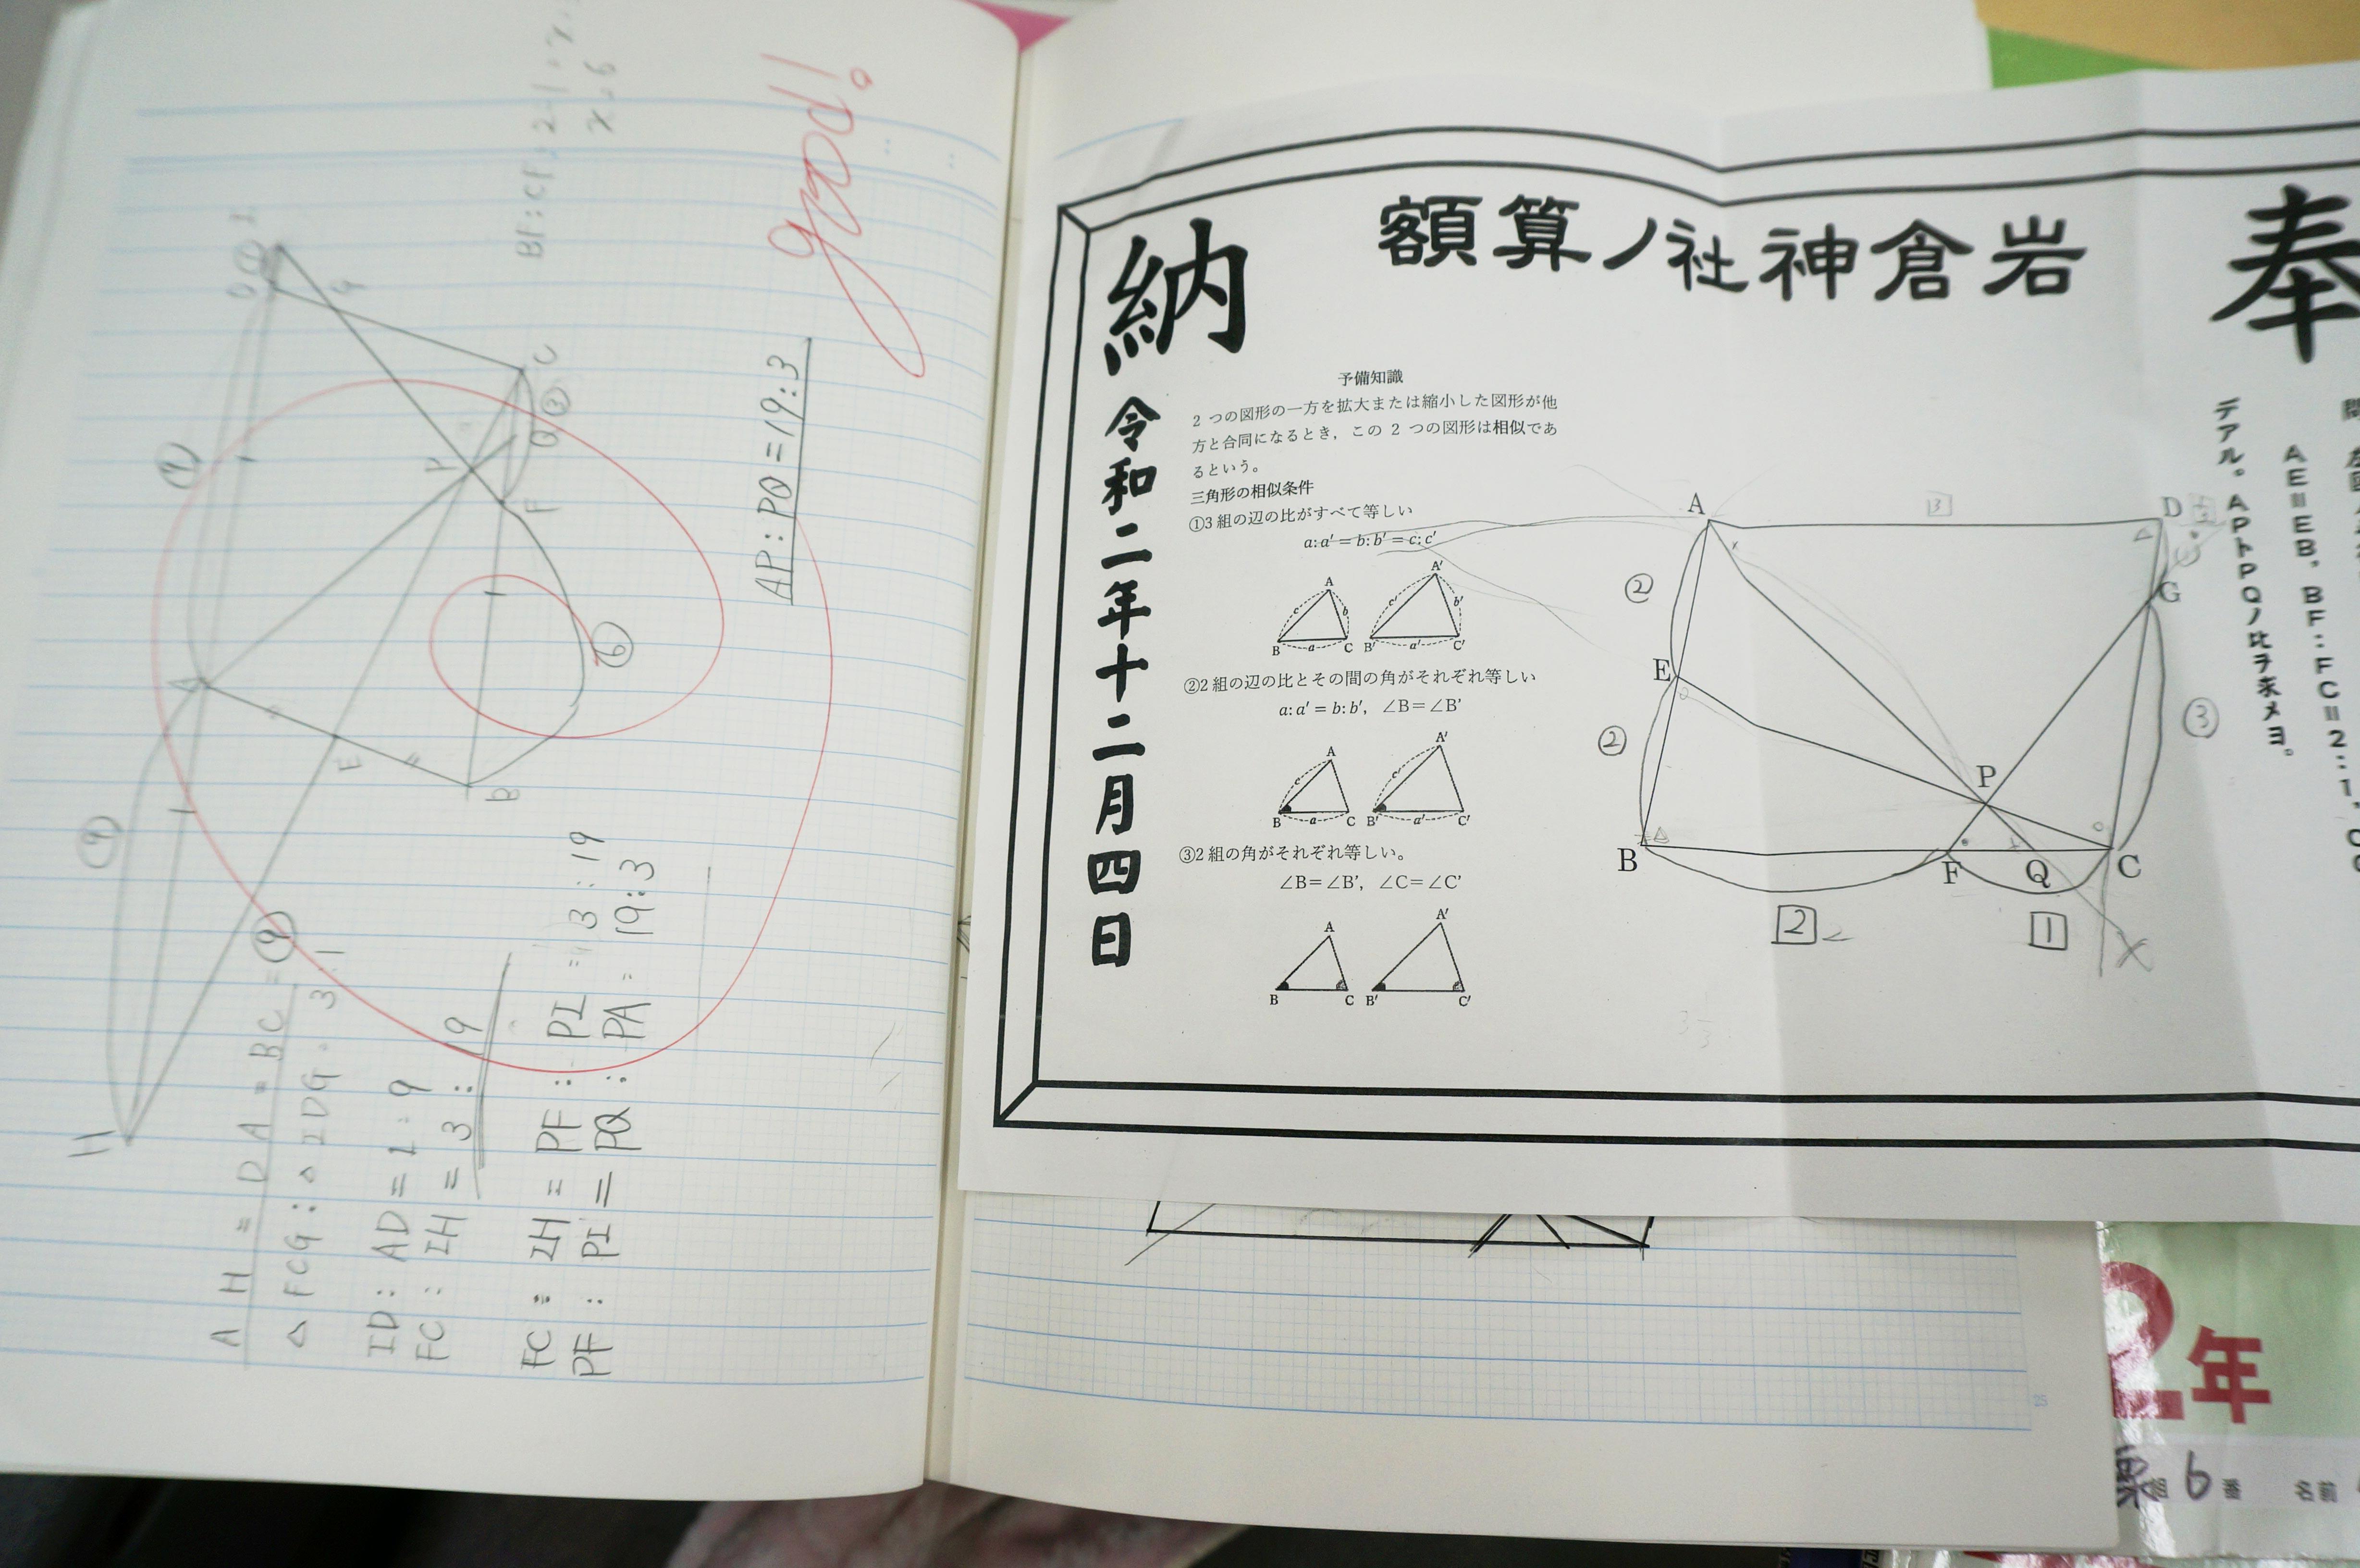 good!
AP:PQ=19:3
BF:CF=2:1=x:
x=6
AH=DA=BC=⑨
△FCG:△IDG=3:1
ID:AD=1:9
FC:IH=3:19
FC:IH=PF:PI=3:19
PF:PI=PQ:PA=19:3
H
A
E
B
⑨
⑨
I
①
D
G
C
③
Q
P
F
⑥
奉
岩倉神社ノ算額
納
令和二年十二月四日
予備知識
2 つの図形の一方を拡大または縮小した図形が他
方と合同になるとき，この 2 つの図形は相似であ
るという。
三角形の相似条件
①3 組の辺の比がすべて等しい
a:a′ = b:b′ = c:c′
A
c
b
B
a
C
A′
c′
b′
B′
a′
C′
②2 組の辺の比とその間の角がそれぞれ等しい
a:a′ = b:b′, ∠B=∠B'
A
c
B
a
C
A′
c′
B′
a′
C′
③2 組の角がそれぞれ等しい。
∠B=∠B', ∠C=∠C'
A
B
C
A′
B′
C′
A
3
D
②
G
E
③
②
P
B
F
Q
C
2
1
AE=EB，BF:FC=2:1，
デアル。APトPQノ比ヲ求メヨ。
25
2年
組 6 番 名前